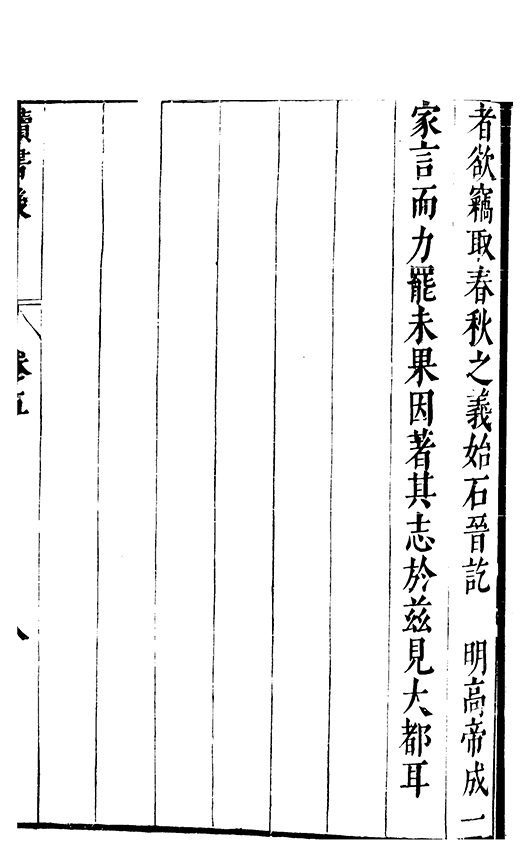 者欲竊取春秋之義始石晉訖　明高帝成一
家言而力罷未果因著其志於兹見大都耳
讀書後
卷五
八